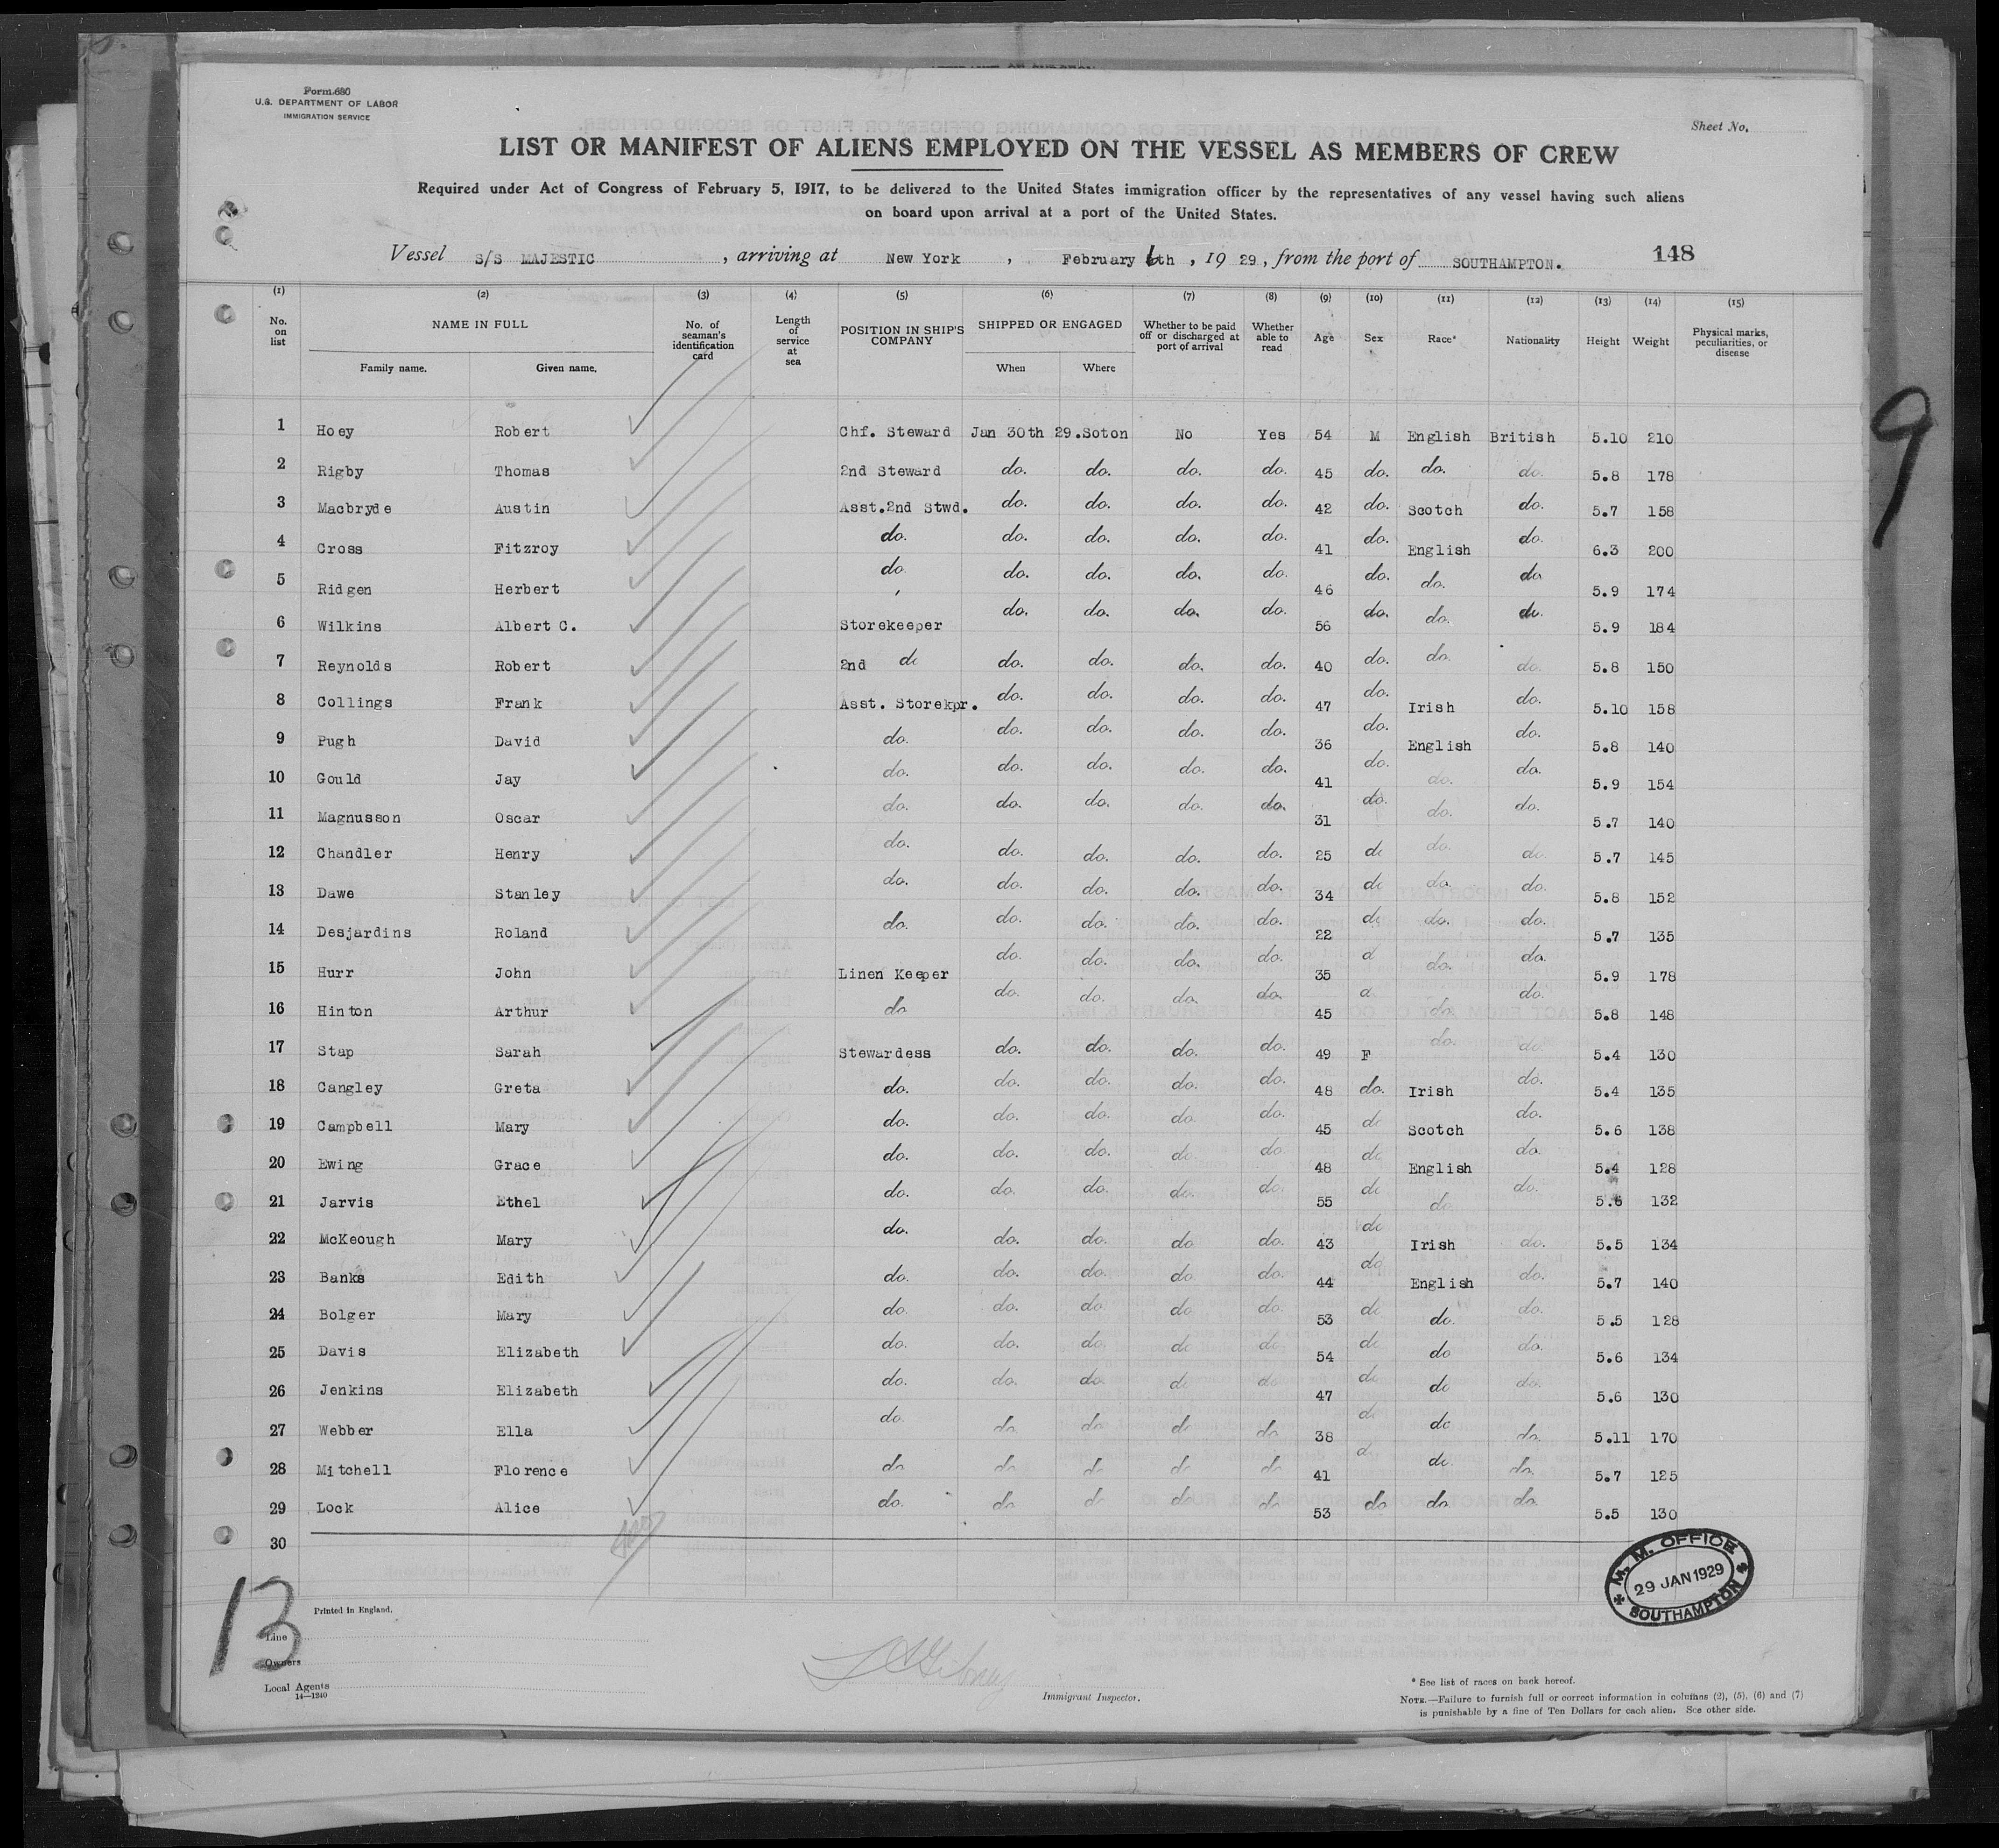 Form 680
U.S. DEPARTMENT OF LABOR
IMMIGRATION SERVICE
Sheet No.
LIST OR MANIFEST OF ALIENS EMPLOYED ON THE VESSEL AS MEMBERS OF CREW
Required under Act of Congress of February 5, 1917, to be delivered to the United States immigration officer by the representatives of any vessel having such aliens
on board upon arrival at a port of the United States.
Vessel S/S MAJESTIC, arriving at New York, February 6th, 1929, from the port of SOUTHAMPTON. 148
(1) (2) (3) (4) (5) (6) (7) (8) (9) (10) (11) (12) (13) (14) (15)
No. on list NAME IN FULL No. of seaman's identification card Length of service at sea POSITION IN SHIP'S COMPANY SHIPPED OR ENGAGED Whether to be paid off or discharged at port of arrival Whether able to read Age Sex Race* Nationality Height Weight Physical marks, peculiarities, or disease
Family name. Given name. When Where
1 Hoey Robert Chf. Steward Jan 30th 29. Soton No Yes 54 M English British 5.10 210
2 Rigby Thomas 2nd Steward do. do. do. do. 45 do. do. do. 5.8 178
3 Macbryde Austin Asst.2nd Stwd. do. do. do. do. 42 do. Scotch do. 5.7 158
4 Cross Fitzroy do. do. do. do. do. 41 do. English do. 6.3 200
5 Ridgen Herbert do. do. do. do. do. 46 do. do. do 5.9 174
6 Wilkins Albert C. Storekeeper do. do. do. do. 56 do. do. do. 5.9 184
7 Reynolds Robert 2nd do do. do. do. do. 40 do. do. do. 5.8 150
8 Collings Frank Asst. Storekpr. do. do. do. do. 47 do. Irish do. 5.10 158
9 Pugh David do. do. do. do. do. 36 do. English do. 5.8 140
10 Gould Jay do. do. do. do. do. 41 do. do. do. 5.9 154
11 Magnusson Oscar do. do. do. do. do. 31 do. do. do. 5.7 140
12 Chandler Henry do. do. do. do. do. 25 do do. do. 5.7 145
13 Dawe Stanley do. do. do. do. do. 34 do do. do. 5.8 152
14 Desjardins Roland do. do. do. do. do. 22 do do. do. 5.7 135
15 Hurr John Linen Keeper do. do. do. do. 35 d do. do. 5.9 178
16 Hinton Arthur do do. do. do. do. 45 d do. do. 5.8 148
17 Stap Sarah Stewardess do. do. do. do. 49 F do. do. 5.4 130
18 Cangley Greta do. do. do. do. do. 48 do. Irish do. 5.4 135
19 Campbell Mary do. do. do. do. do. 45 do Scotch do. 5.6 138
20 Ewing Grace do. do. do. do. do. 48 do English do. 5.4 128
21 Jarvis Ethel do. do. do. do. do. 55 do do do. 5.6 132
22 McKeough Mary do. do. do. do do. 43 do Irish do. 5.5 134
23 Banks Edith do. do. do. do do. 44 do English do. 5.7 140
24 Bolger Mary do. do. do. do do. 53 do do. do. 5.5 128
25 Davis Elizabeth do. do. do. do do 54 do do do. 5.6 134
26 Jenkins Elizabeth do. do. do. do do 47 do do do. 5.6 130
27 Webber Ella do. do do do do 38 do do do. 5.11 170
28 Mitchell Florence do do do do do 41 d do. do. 5.7 125
29 Lock Alice do. do do do do 53 do do do. 5.5 130
30
9
M. M. OFFICE
29 JAN 1929
SOUTHAMPTON
13
Printed in England.
Line
Owners
Local Agents
14—1240
Immigrant Inspector.
* See list of races on back hereof.
NOTE.—Failure to furnish full or correct information in columns (2), (5), (6) and (7)
is punishable by a fine of Ten Dollars for each alien. See other side.